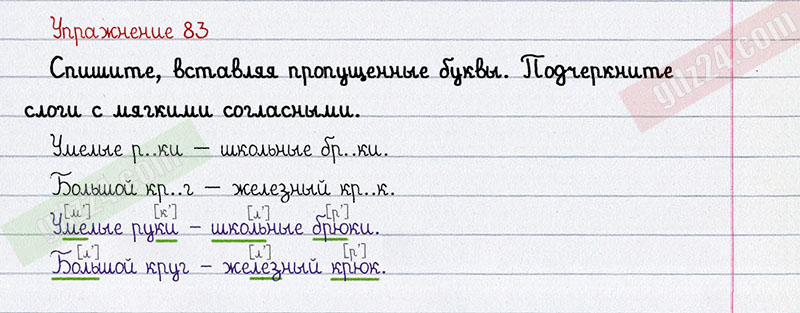 Упражнение 83
Спишите, вставляя пропущенные буквы. Подчеркните
слоги с мягкими согласными.
Умелые р..ки – школьные бр..ки.
Большой кр..г – железный кр..к.
[м'] [к'] [л'] [р']
Умелые руки – школьные брюки.
[л'] [л'] [р']
Большой круг – железный крюк.
gdz24.com
gdz24.com